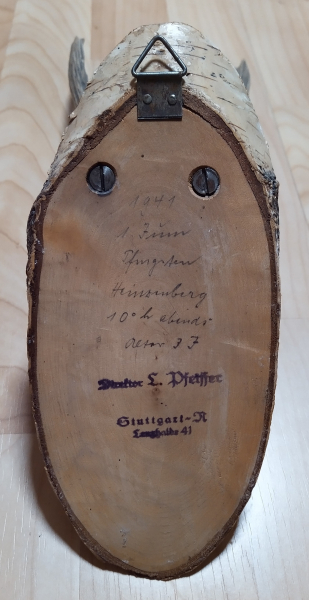 1941
1. Juni
Pfingsten
Heinsenberg
10°h abends
Alter 3 J
Direktor L. Pfeiffer
Stuttgart-R
Lenzhalde 41